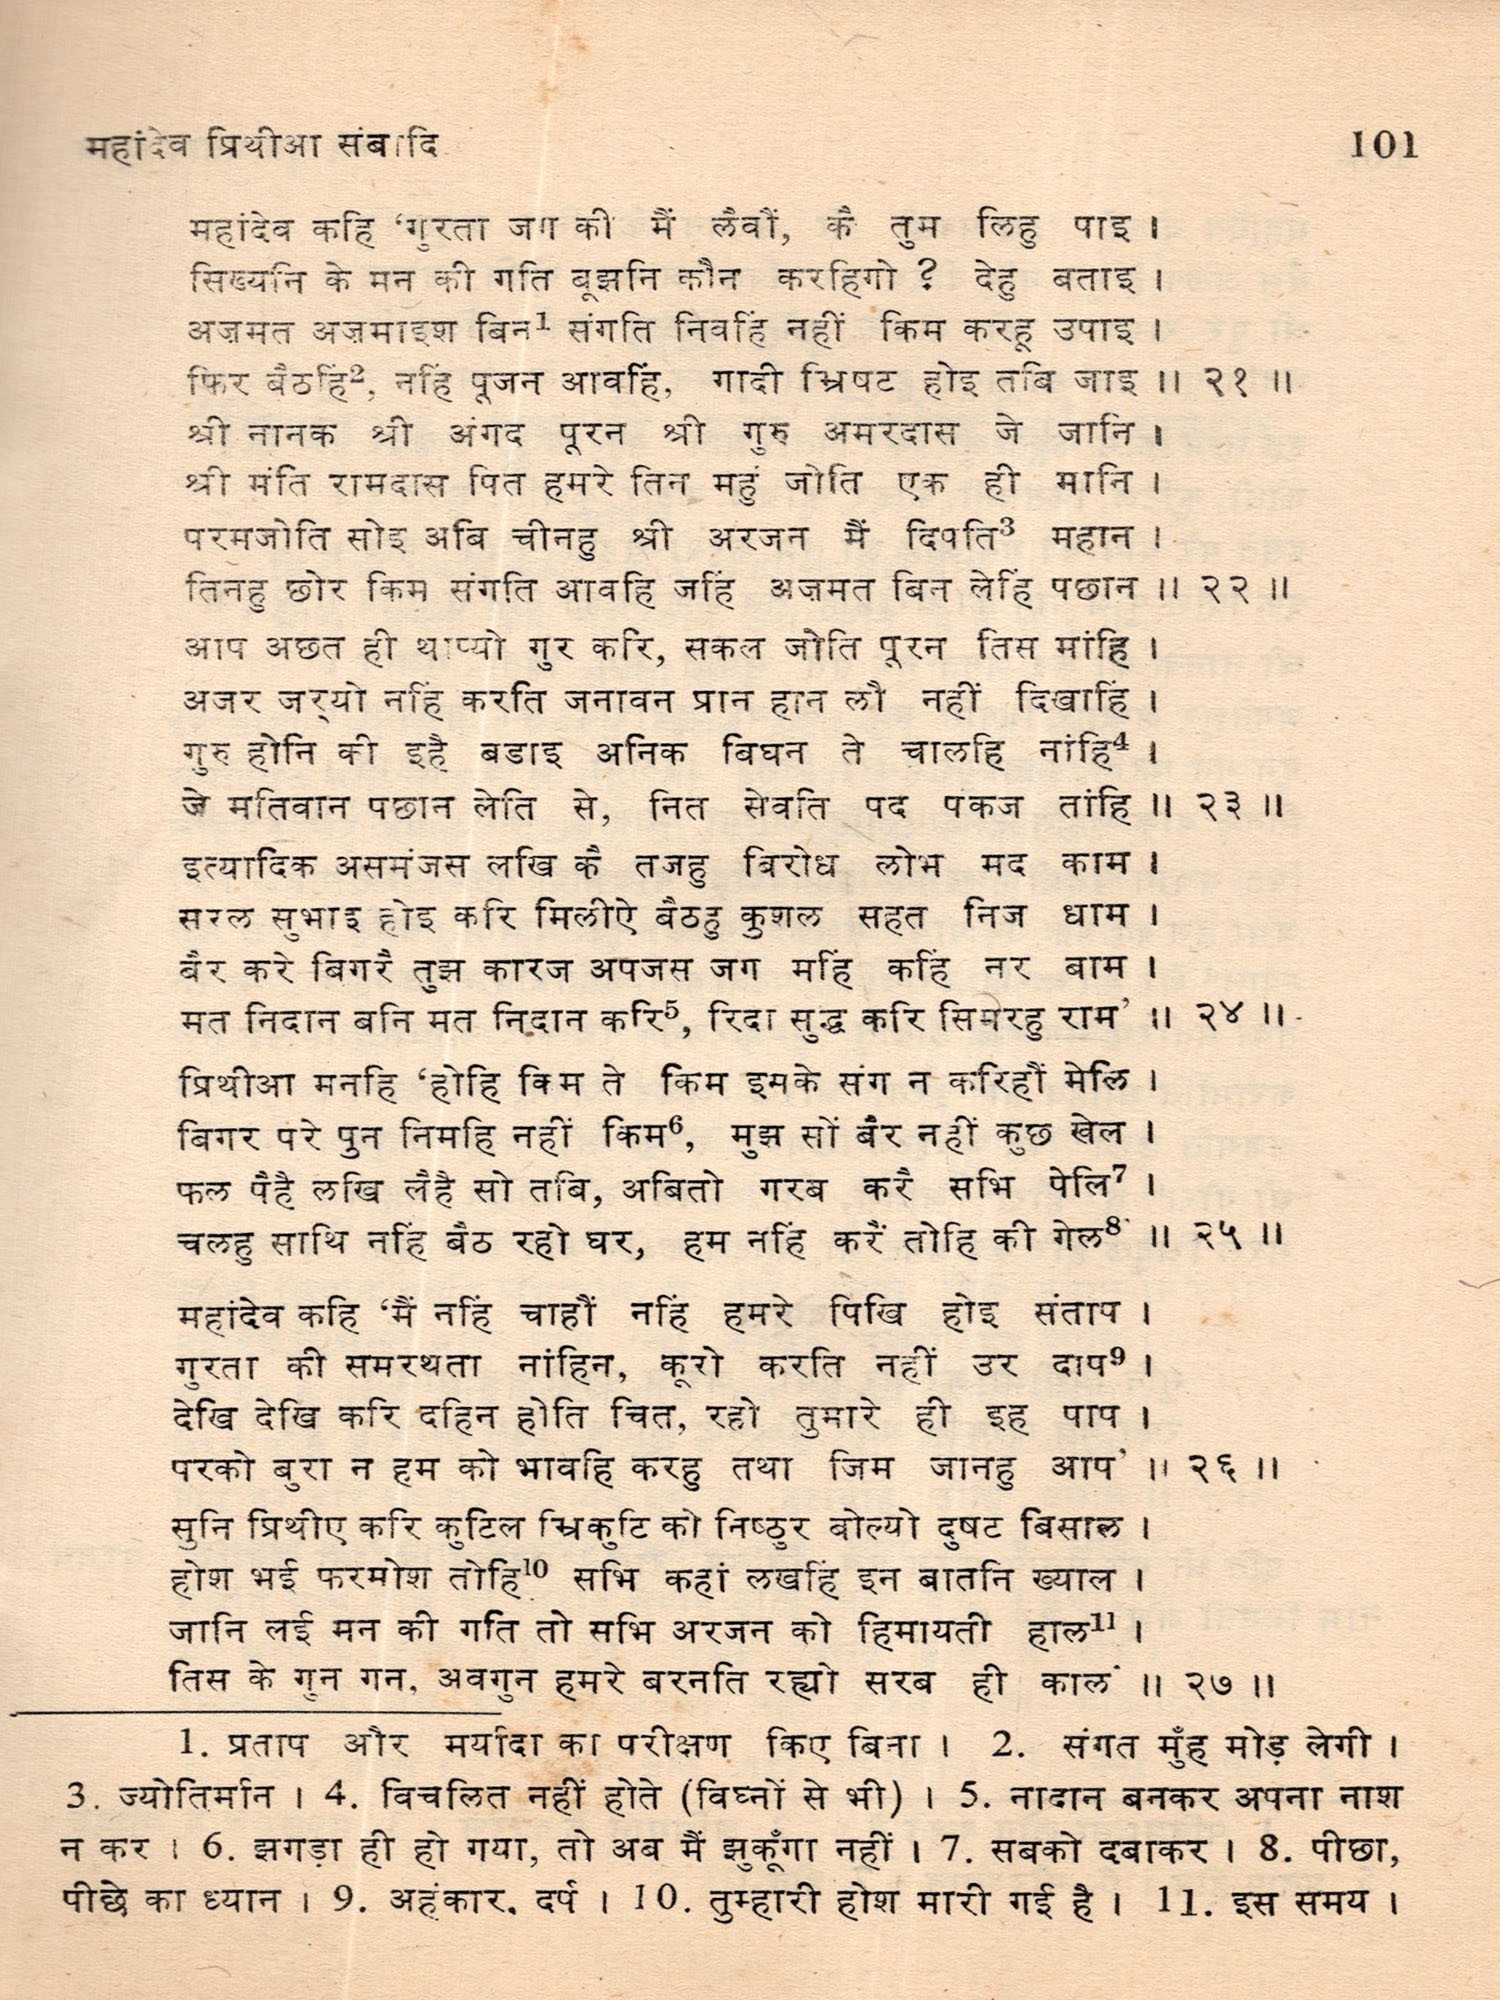 महांदेव प्रिथीआ संबादि 101
महांदेव कहि ‘गुरता जग की मैं लैवौं, कै तुम लिहु पाइ ।
सिख्यनि के मन की गति बूझनि कौन करहिगो ? देहु बताइ ।
अज़मत अज़माइश बिन¹ संगति निवहिं नहीं किम करहू उपाइ ।
फिर बैठहिं², नहिं पूजन आवहिं, गादी भ्रिषट होइ तबि जाइ ।। २१ ।।
श्री नानक श्री अंगद पूरन श्री गुरु अमरदास जे जानि ।
श्री मंति रामदास पित हमरे तिन महुं जोति एक ही मानि ।
परमजोति सोइ अबि चीनहु श्री अरजन मैं दिपति³ महान ।
तिनहु छोर किम संगति आवहि जहिं अज़मत बिन लेहिं पछान ।। २२ ।।
आप अछत ही थाप्यो गुर करि, सकल जोति पूरन तिस मांहि ।
अजर जर्‌यो नहिं करति जनावन प्रान हान लौ नहीं दिखाहिं ।
गुरु होनि की इहै बडाइ अनिक बिघन ते चालहि नांहि⁴ ।
जे मतिवान पछान लेति से, नित सेवति पद पकज तांहि ।। २३ ।।
इत्यादिक असमंजस लखि कै तजहु बिरोध लोभ मद काम ।
सरल सुभाइ होइ करि मिलीऐ बैठहु कुशल सहत निज धाम ।
बैर करे बिगरै तुझ कारज अपजस जग महिं कहिं नर बाम ।
मत निदान बनि मत निदान करि⁵, रिदा सुद्ध करि सिमरहु राम’ ।। २४ ।।
प्रिथीआ मनहि ‘होहि किम ते किम इमके संग न करिहौं मेलि ।
बिगर परे पुन निमहि नहीं किम⁶, मुझ सों बैर नहीं कुछ खेल ।
फल पैहै लखि लैहै सो तबि, अबितो गरब करै सभि पेलि⁷ ।
चलहु साथि नहिं बैठ रहो घर, हम नहिं करैं तोहि की गेल⁸’ ।। २५ ।।
महांदेव कहि ‘मैं नहिं चाहौं नहिं हमरे पिखि होइ संताप ।
गुरता की समरथता नांहिन, कूरो करति नहीं उर दाप⁹ ।
देखि देखि करि दहिन होति चित, रहो तुमारे ही इह पाप ।
परको बुरा न हम को भावहि करहु तथा जिम जानहु आप’ ।। २६ ।।
सुनि प्रिथीए करि कुटिल भ्रिकुटि को निष्ठुर बोल्यो दुषट बिसाल ।
होश भई फरमोश तोहि¹⁰ सभि कहां लखहिं इन बातनि ख्याल ।
जानि लई मन की गति तो सभि अरजन को हिमायती हाल¹¹ ।
तिस के गुन गन, अवगुन हमरे बरनति रह्यो सरब ही काल ।। २७ ।।
1. प्रताप और मर्यादा का परीक्षण किए बिना । 2. संगत मुँह मोड़ लेगी ।
3. ज्योतिर्मान । 4. विचलित नहीं होते (विघ्नों से भी) । 5. नादान बनकर अपना नाश
न कर । 6. झगड़ा ही हो गया, तो अब मैं झुकूँगा नहीं । 7. सबको दबाकर । 8. पीछा,
पीछे का ध्यान । 9. अहंकार, दर्प । 10. तुम्हारी होश मारी गई है । 11. इस समय ।